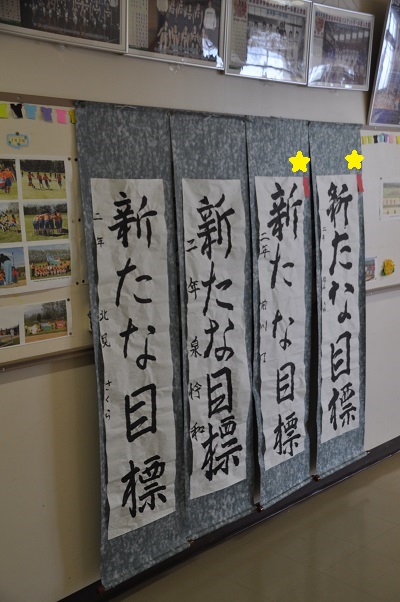 新たな目標
二年 北見 さくら
新たな目標
二年 泉 怜和
新たな目標
二年
新たな目標